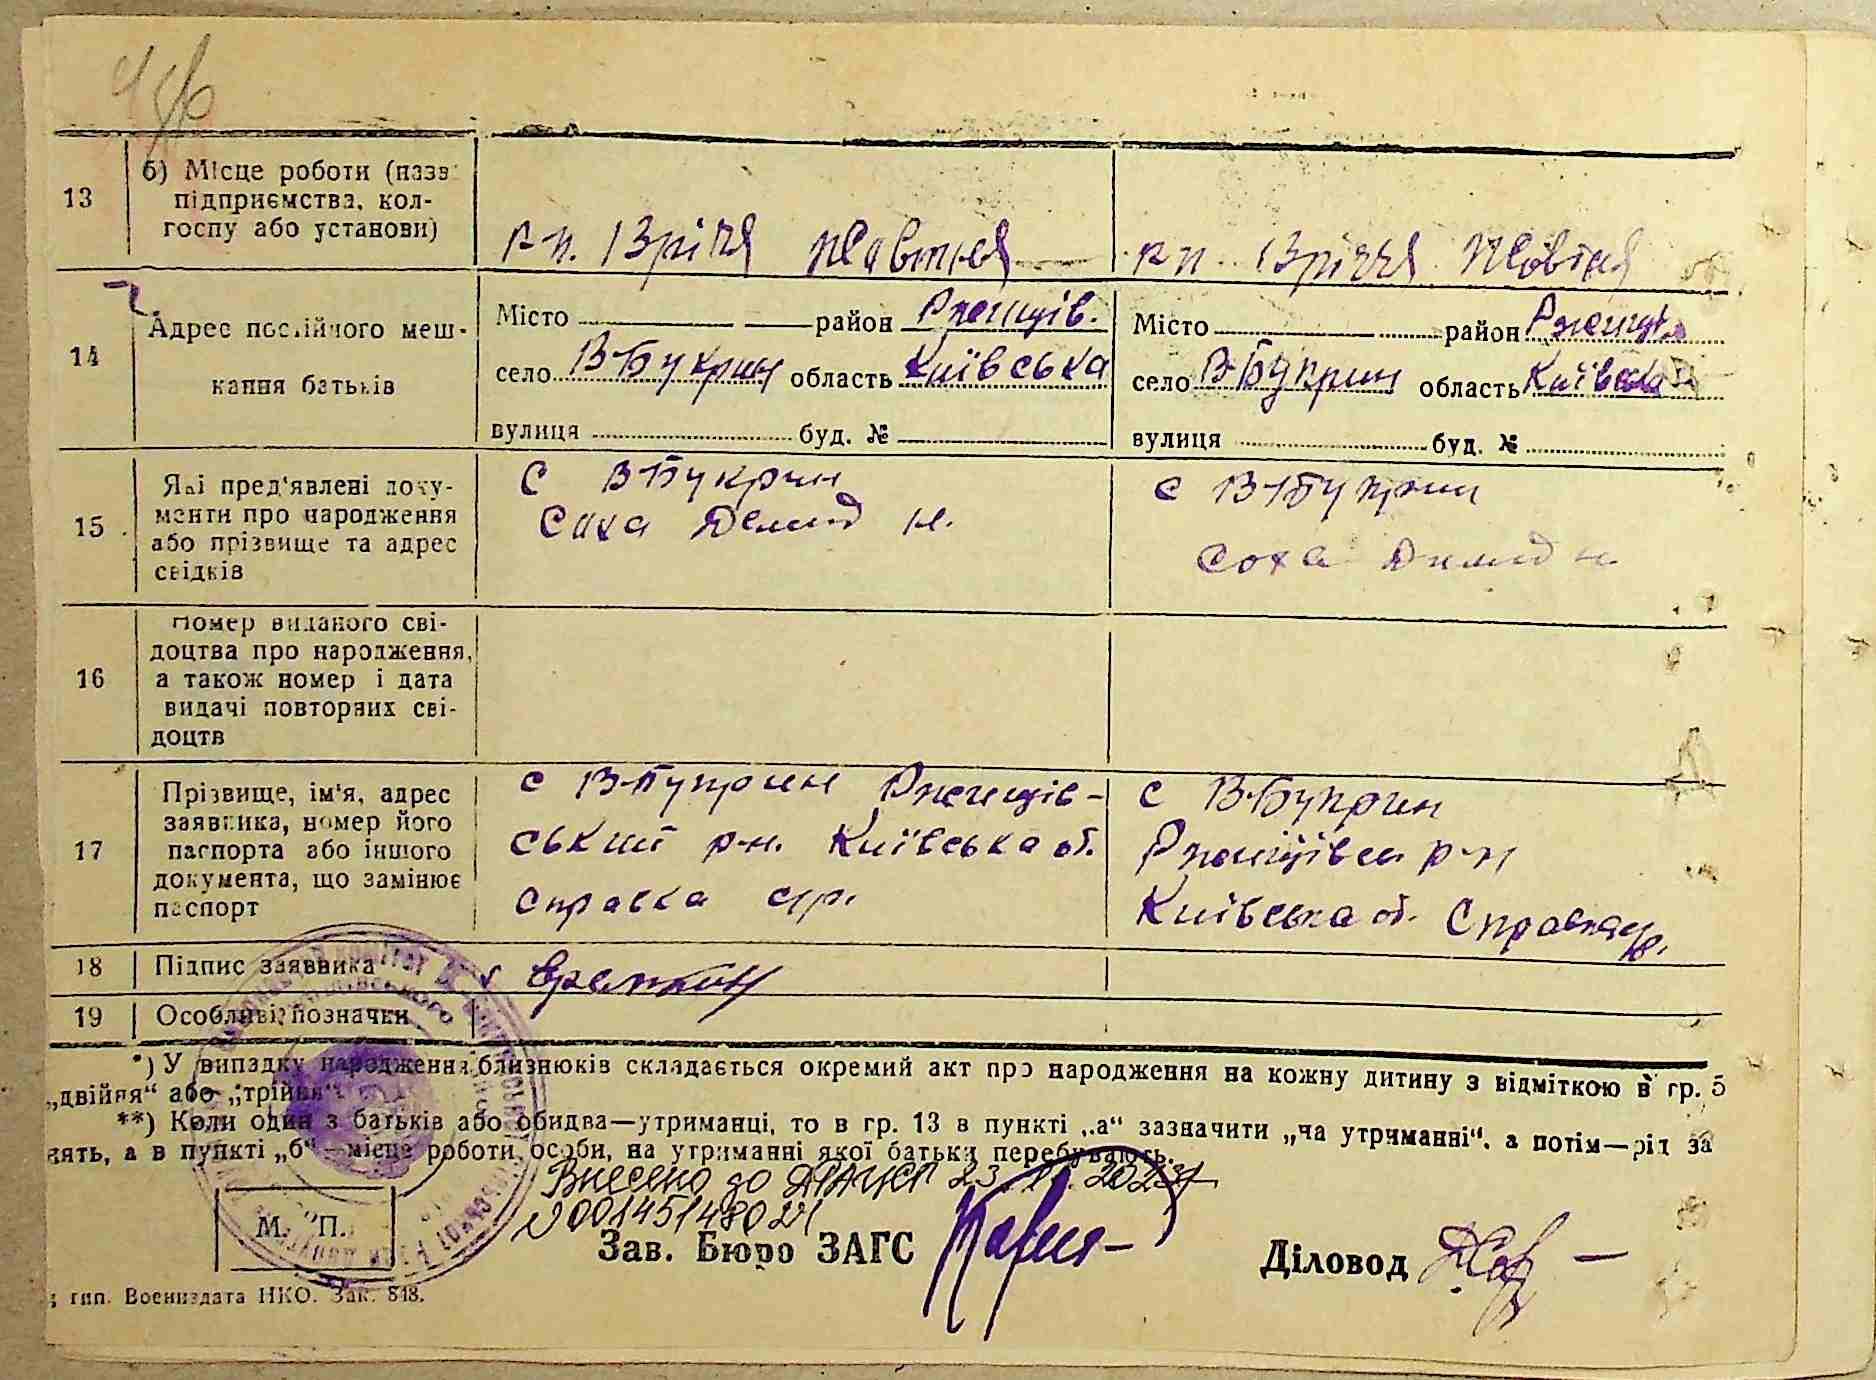 13
б) Місце роботи (назв
підприємства, кол-
госпу або установи)
к-п. 13річчя Жовтня
к-п 13річчя Жовтня
14
Адрес постійного меш-
кання батьків
Місто район Ржищів.
село В-Букрин область Київська
вулиця буд. №
Місто район Ржищ
село В-Букрин область Київська
вулиця буд. №
15
Які пред'явлені доку-
менти про народження
або прізвище та адрес
свідків
с В-Букрин
Соха Демид
с В-Букрин
Соха Демид
16
Номер виданого сві-
доцтва про народження,
а також номер і дата
видачі повторних сві-
доцтв
17
Прізвище, ім'я, адрес
заявника, номер його
паспорта або іншого
документа, що замінює
паспорт
с В-Букрин Ржищів-
ський р-н. Київська об.
Справка с/р.
с В-Букрин
Ржищівськ р-н
Київська об. Справка с/р.
18
Підпис заявника
19
Особливі позначки
*) У випадку народження близнюків складається окремий акт про народження на кожну дитину з відміткою в гр. 5
„двійня“ або „трійня“.
**) Коли один з батьків або обидва—утриманці, то в гр. 13 в пункті „а“ зазначити „на утриманні“, а потім—рід за
нять, а в пункті „б“—місце роботи особи, на утриманні якої батьки перебувають.
Внесено до ДРАЦСГ 23. 2023
М. П.
Зав. Бюро ЗАГС
Діловод
тип. Воениздата НКО. Зак. 818.